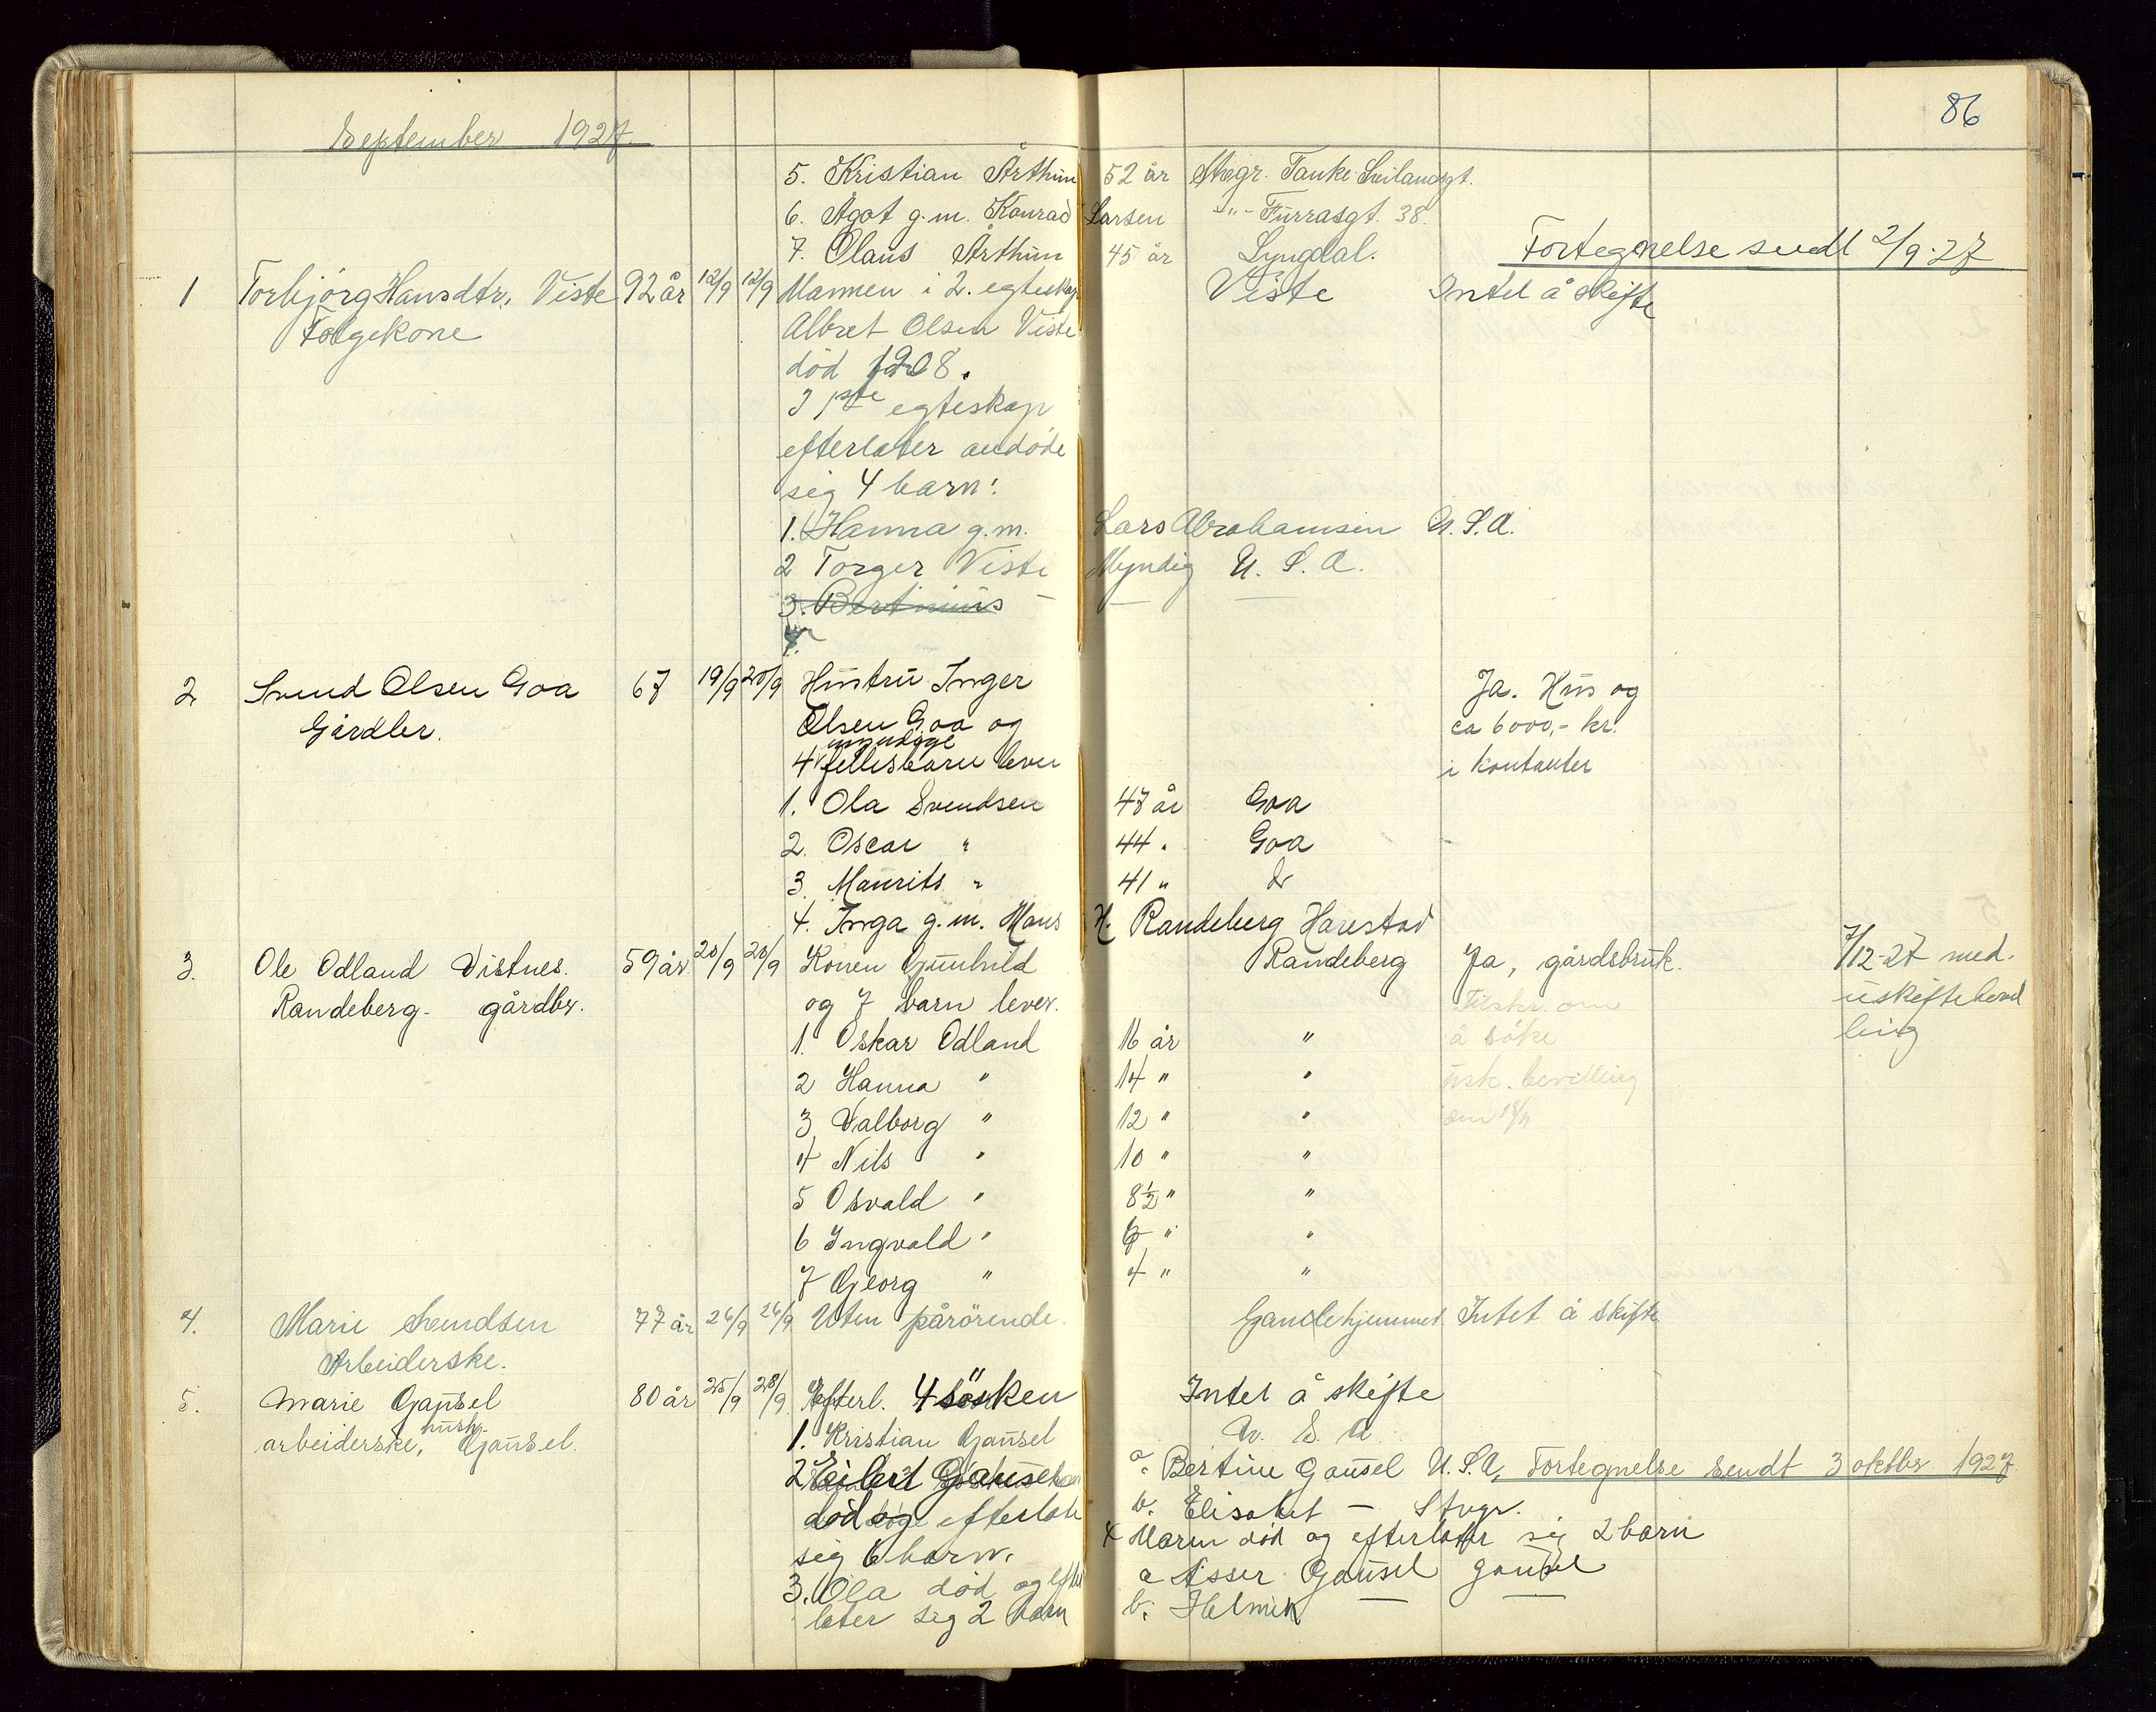 86
September 1927.
5. Kristian Årthun 52 år Stvgr. Tanke Svilandsgt.
6. Ågot g.m. Konrad Larsen -"- Furrasgt. 38.
7. Olaus Årthun 45 år Lyngdal. Fortegnelse sendt 2/9-27
1 Torbjörg Hansdtr. Viste 92 år 12/9 12/9 Mannen i 2. egteskap Viste Intet å skifte
Folgekone Albret Olsen Viste
död 1908.
I 1ste egteskap
efterlater avdøde
sig 4 barn:
1. Hanna g.m. Lars Abrahamsen U.S.A.
2 Torger Viste Myndig U.S.A.
3. Bertinius
4.
2 Svend Olsen Goa 67 19/9 20/9 Hustru Inger Ja. Hus og
Gårdbr. Olsen Goa og ca 6000,- kr.
myndige
4 fellesbarn lever i kontanter
1. Ola Svendsen 47 år Goa
2. Oscar " 44 " Goa
3. Maurits " 41 " do
4. Inga g.m. Hans H. Randeberg Harestad
3. Ole Odland Vistnes. 59 år 20/9 20/9 Konen Gunhild Randeberg Ja, gårdsbruk. 7/12-27 med.
Randeberg. gårdbr. og 7 barn lever. Tilskr. om uskiftebevil
1. Oskar Odland 16 år " å söke ling
2 Hanna " 14 " " usk. bevilling
3 Valborg " 12 " "
4 Nils " 10 " "
5 Osvald " 8½ " "
6 Ingvald " 6 " "
7 Georg " 4 " "
4. Marie Svendsen 77 år 26/9 26/9 Uten pårörende. Gamlehjemmet Intet å skifte
Arbeiderske.
5. Marie Gausel 80 år 25/9 28/9 Efterl. 4 sösken Intet å skifte
hush.
arbeiderske, Gausel. 1. Kristian Gausel U.S.A.
2 Eilert Gausel a. Bertine Gausel U.S.A. Fortegnelse sendt 3 oktbr 1927
död og efterlate b. Elisabet — Stvgr.
sig 6 barn. 4 Maren död og efterlater sig 2 barn
3. Ola död og efter a Asser Gausel Gausel
later sig 2 barn b. Helmik — —